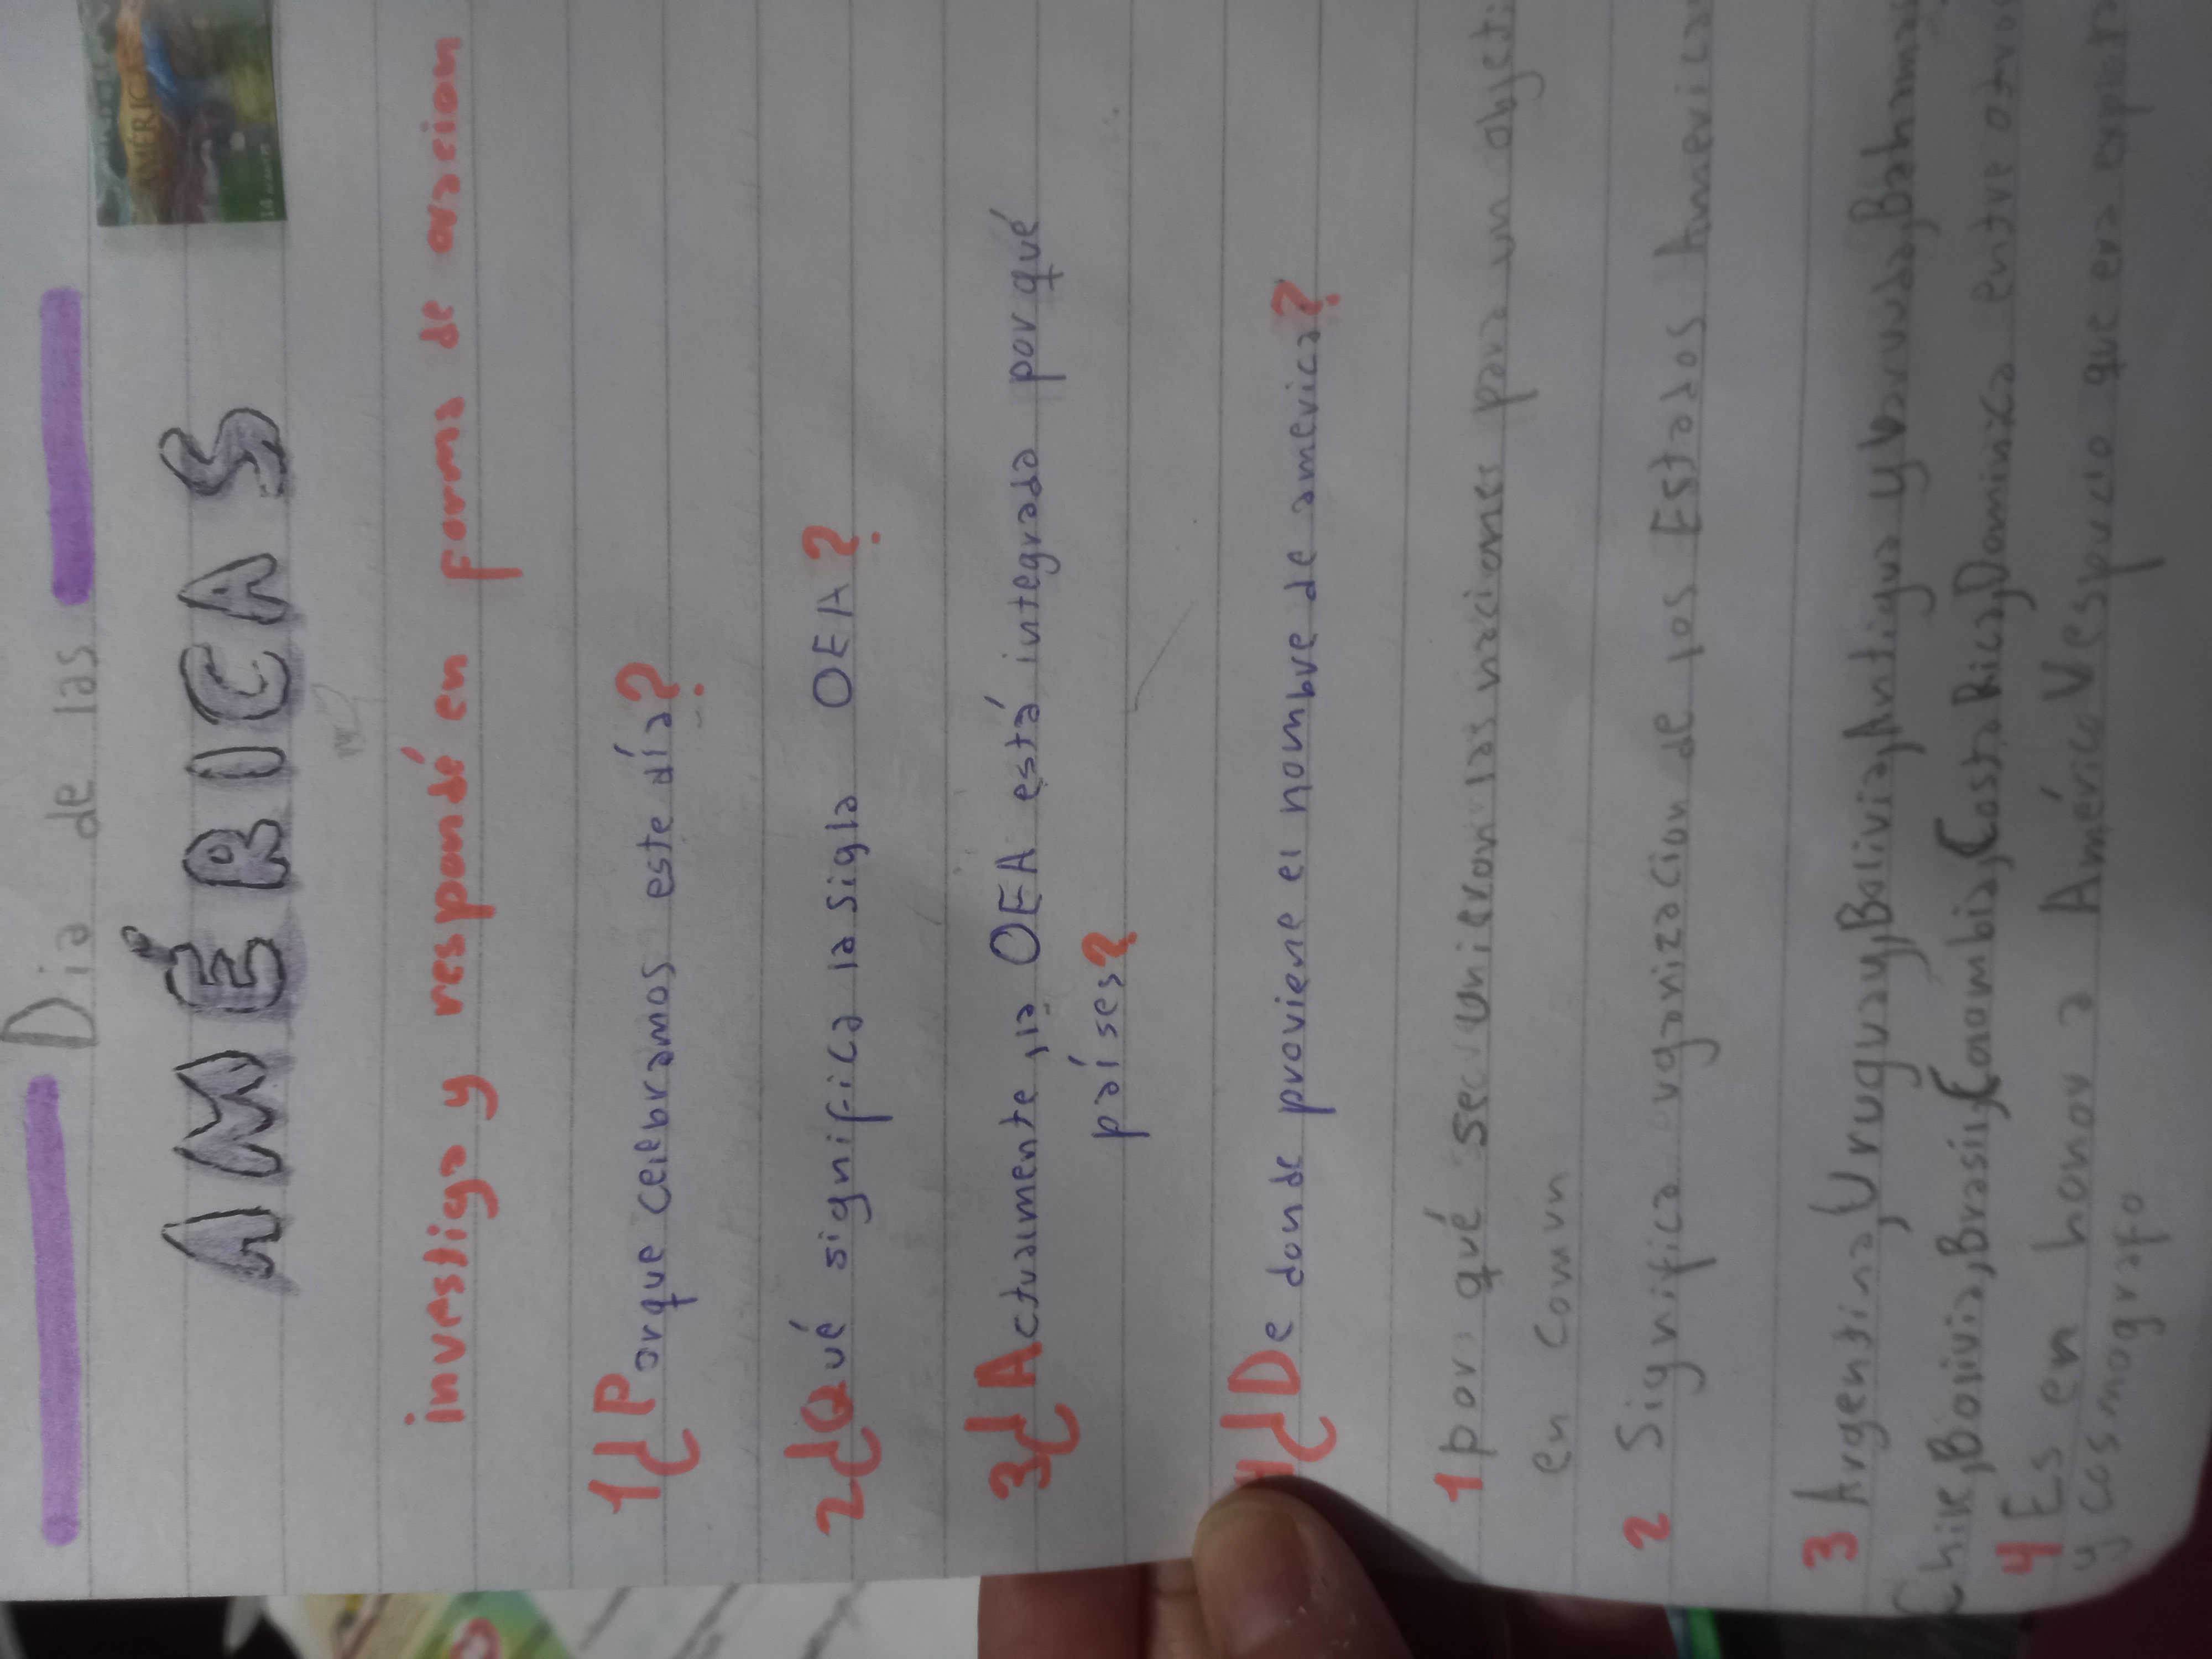 Dia de las
AMÉRICAS
AMÉRICA
14
investiga y respondé en forma de oracion
1 Porque celebramos este día?
2 Qué significa la sigla OEA?
3 Actuamente, la OEA está integrada por qué
países?
4 De donde proviene el nombre de america?
1 por qué se unieron las naciones para un objeti
en comun
2 Significa organizacion de los Estados America
3 Argentina, Uruguay, Bolivia, Antigua y barvuda, Bahamas,
Chile, Bolivia, Brasil, Colombia, Costa Rica, Dominica entre otros
4 Es en honor a Américo Vespucio que era explora
y cosmografo